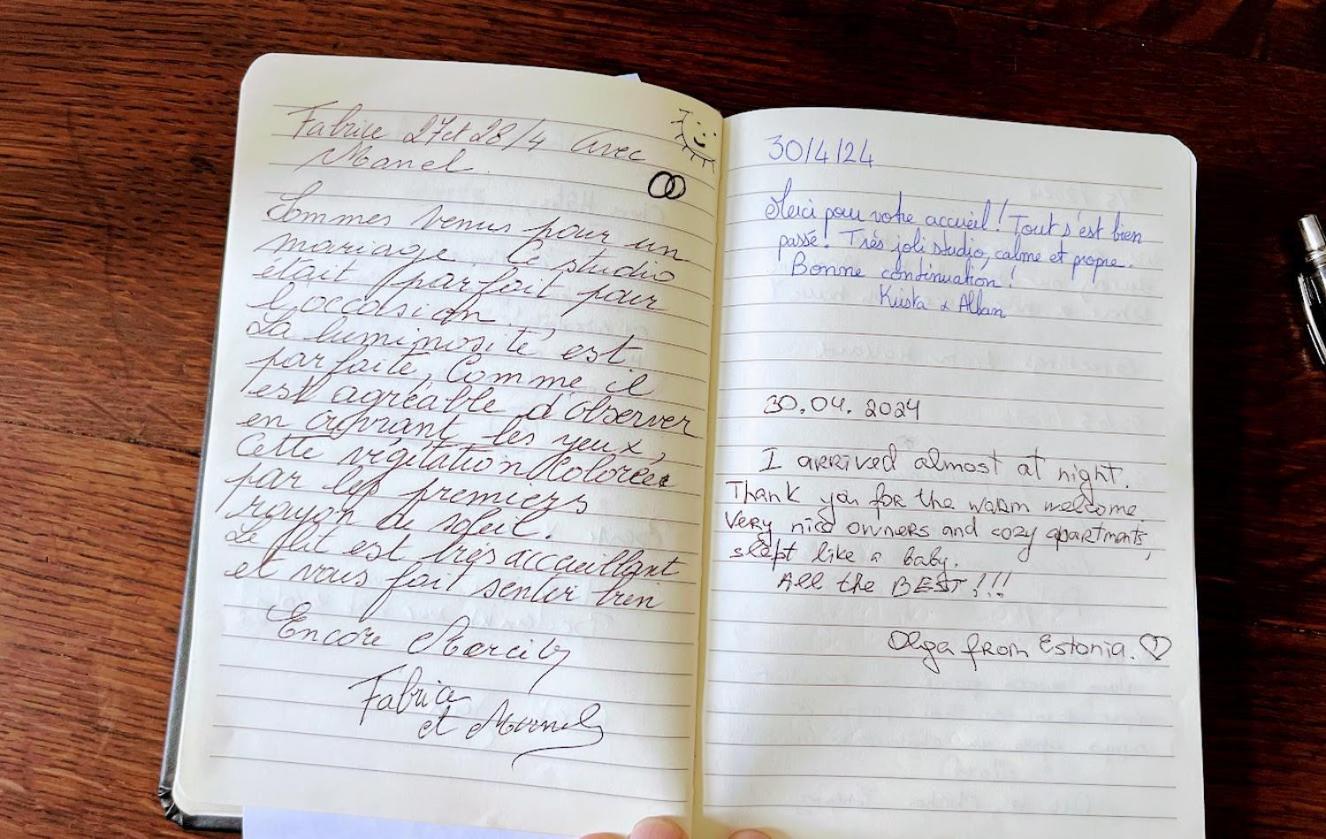 Fabrice 27 et 28/4 avec
Manel.
Sommes venus pour un
mariage. Ce studio
était parfait pour
l'occasion.
La luminosité est
parfaite, Comme il
est agréable d'observer
en ouvrant les yeux,
Cette végétation colorée
par les premiers
rayon du soleil.
Le lit est très accueillant
et vous fait sentir bien
Encore Merci
Fabrice
et Manel
30/4/24
Merci pour votre accueil! Tout s'est bien
passé! Très joli studio, calme et propre.
Bonne continuation!
& Alban
30.04.2024
I arrived almost at night.
Thank you for the warm welcome
Very nice owners and cozy apartments,
slept like a baby.
All the BEST!!!
Olga from Estonia.